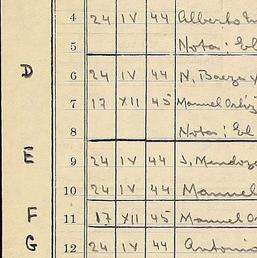 4 24 IV 44 Alberto
5 Nota: El
D
6 24 IV 44 N. Baeza y
7 17 XII 45 Manuel Ortiz
8 Nota: El
E
9 24 IV 44 J. Mendoza
10 24 IV 44 Manuel
F
11 17 XII 45 Manuel
G
12 24 IV 44 Antonio